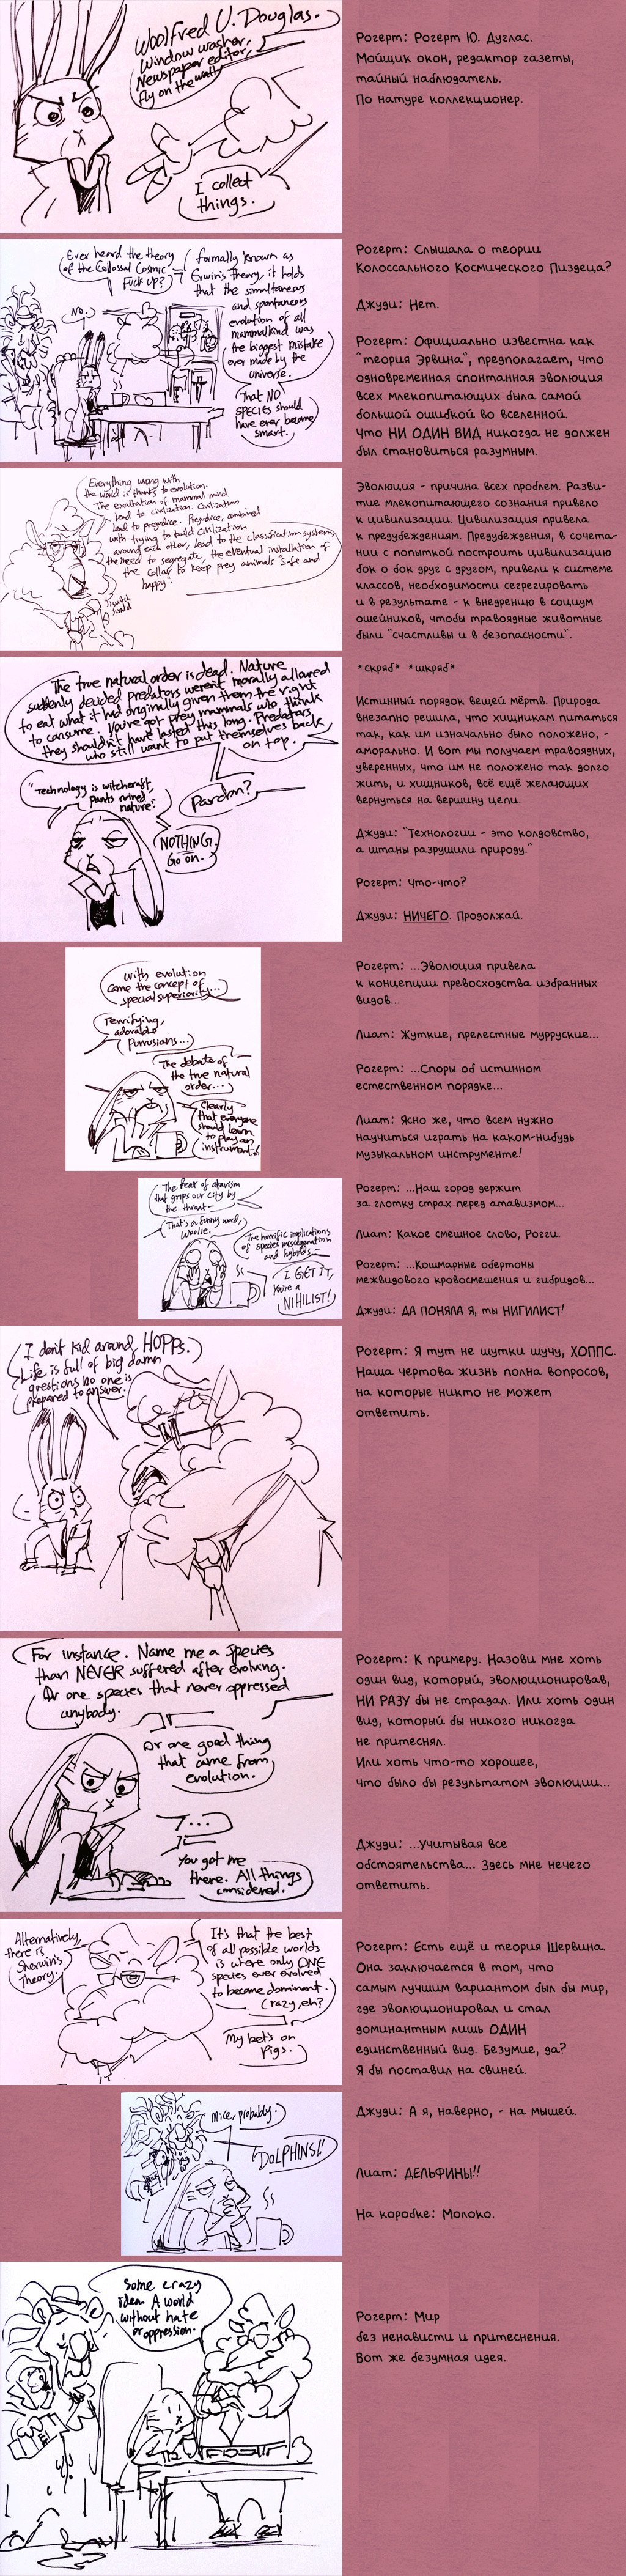 Woolfred U. Douglas.
Window washer,
Newspaper editor,
Fly on the wall.
I collect
things.
Рогерт: Рогерт Ю. Дуглас.
Мойщик окон, редактор газеты,
тайный наблюдатель.
По натуре коллекционер.
Ever heard the theory
of the Collosal Cosmic
Fuck Up?
No.
formally known as
Erwin's Theory, it holds
that the simultaneous
and spontaneous
evolution of all
mammalkind was
the biggest mistake
ever made by the
universe.
That NO
SPECIES should
have ever become
smart.
Рогерт: Слышала о теории
Колоссального Космического Пиздеца?
Джуди: Нет.
Рогерт: Официально известна как
"теория Эрвина", предполагает, что
одновременная спонтанная эволюция
всех млекопитающих была самой
большой ошибкой во вселенной.
Что НИ ОДИН ВИД никогда не должен
был становиться разумным.
Everything wrong with
the world is thanks to evolution.
The exaltation of mammal mind
lead to civilization. Civilization
lead to prejudice. Prejudice, combined
with trying to build civilization
around each other, lead to the classification system,
the need to segregate, the eventual installation of
the collar to keep prey animals "safe and
happy".
Эволюция - причина всех проблем. Разви-
тие млекопитающего сознания привело
к цивилизации. Цивилизация привела
к предубеждениям. Предубеждения, в сочета-
нии с попыткой построить цивилизацию
бок о бок друг с другом, привели к системе
классов, необходимости сегрегировать
и в результате - к внедрению в социум
ошейников, чтобы травоядные животные
были "счастливы и в безопасности".
*скряб* *шкряб*
The true natural order is dead. Nature
suddenly decided predators weren't morally allowed
to eat what it had originally given them the right
to consume. You've got prey mammals who think
they shouldn't have lasted this long. Predators
who still want to put themselves back
on top.
"Technology is witchcraft,
pants ruined
nature".
Pardon?
NOTHING.
Go on.
Истинный порядок вещей мёртв. Природа
внезапно решила, что хищникам питаться
так, как им изначально было положено, -
аморально. И вот мы получаем травоядных,
уверенных, что им не положено так долго
жить, и хищников, всё ещё желающих
вернуться на вершину цепи.
Джуди: "Технологии - это колдовство,
а штаны разрушили природу."
Рогерт: Что-что?
Джуди: НИЧЕГО. Продолжай.
with evolution
came the concept of
special superiority...
Terrifying,
adorable
Purrusians...
The debate of
the true natural
order...
Clearly
that everyone
should learn
to play an
instrument!
Рогерт: ...Эволюция привела
к концепции превосходства избранных
видов...
Лиат: Жуткие, прелестные мурруские...
Рогерт: ...Споры об истинном
естественном порядке...
Лиат: Ясно же, что всем нужно
научиться играть на каком-нибудь
музыкальном инструменте!
The fear of atavism
that grips our city by
the throat-
That's a funny word,
Woolie.
The horrific implications
of species miscegenation
and hybrids-
I GET IT,
you're a
NIHILIST!
Рогерт: ...Наш город держит
за глотку страх перед атавизмом...
Лиат: Какое смешное слово, Рогги.
Рогерт: ...Кошмарные обертоны
межвидового кровосмешения и гибридов...
Джуди: ДА ПОНЯЛА Я, ты НИГИЛИСТ!
I don't kid around, HOPPS.
Life is full of big damn
questions no one is
prepared to answer.
Рогерт: Я тут не шутки шучу, ХОППС.
Наша чертова жизнь полна вопросов,
на которые никто не может
ответить.
For instance. Name me a species
than NEVER suffered after evolving.
Or one species that never oppressed
anybody.
Or one good thing
that came from
evolution.
...
You got me
there. All things
considered.
Рогерт: К примеру. Назови мне хоть
один вид, который, эволюционировав,
НИ РАЗУ бы не страдал. Или хоть один
вид, который бы никого никогда
не притеснял.
Или хоть что-то хорошее,
что было бы результатом эволюции...
Джуди: ...Учитывая все
обстоятельства... Здесь мне нечего
ответить.
Alternatively,
there is
Sherwin's
Theory:
It's that the best
of all possible worlds
is where only ONE
species ever evolved
to become dominant.
Crazy, eh?
My bet's on
Pigs.
Рогерт: Есть ещё и теория Шервина.
Она заключается в том, что
самым лучшим вариантом был бы мир,
где эволюционировал и стал
доминантным лишь ОДИН
единственный вид. Безумие, да?
Я бы поставил на свиней.
Mice, probably.
DOLPHINS!!
Джуди: А я, наверно, - на мышей.
Лиат: ДЕЛЬФИНЫ!!
На коробке: Молоко.
Some crazy
idea. A world
without hate
or oppression.
Рогерт: Мир
без ненависти и притеснения.
Вот же безумная идея.